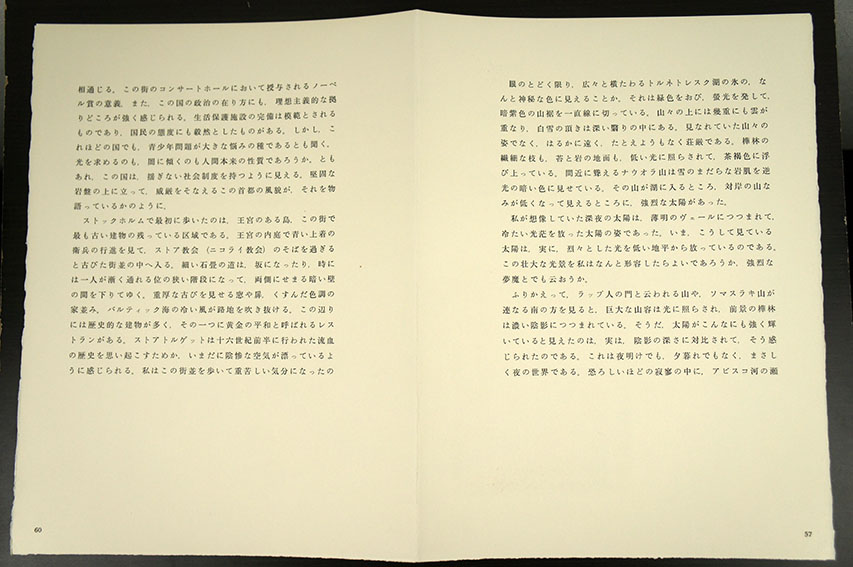 相通じる。この街のコンサートホールにおいて授与されるノーベ
ル賞の意義、また、この国の政治の在り方にも、理想主義的な拠
りどころが強く感じられる。生活保護施設の完備は模範とされる
ものであり、国民の態度にも毅然としたものがある。しかし、こ
れほどの国でも、青少年問題が大きな悩みの種であるとも聞く。
光を求めるのも、闇に傾くのも人間本来の性質であろうか。とも
あれ、この国は、揺ぎない社会制度を持つように見える。堅固な
岩盤の上に立って、威厳をそなえるこの首都の風貌が、それを物
語っているかのように。
ストックホルムで最初に歩いたのは、王宮のある島、この街で
最も古い建物の残っている区域である。王宮の内庭で青い上着の
衛兵の行進を見て、ストア教会（ニコライ教会）のそばを過ぎる
と古びた街並の中へ入る。細い石畳の道は、坂になったり、時に
は一人が漸く通れる位の狭い階段になって、両側にせまる暗い壁
の間を下りてゆく。重厚な古びを見せる窓や扉、くすんだ色調の
家並み、バルティック海の冷い風が路地を吹き抜ける。この辺り
には歴史的な建物が多く、その一つに黄金の平和と呼ばれるレス
トランがある。ストアトルゲットは十六世紀前半に行われた流血
の歴史を思い起こすためか、いまだに陰惨な空気が漂っているよ
うに感じられる。私はこの街並を歩いて重苦しい気分になったの
60
眼のとどく限り、広々と横たわるトルネトレスク湖の氷の、な
んと神秘な色に見えることか。それは緑色をおび、螢光を発して、
暗紫色の山裾を一直線に切っている。山々の上には幾重にも雲が
重なり、白雪の頂きは深い翳りの中にある。見なれていた山々の
姿でなく、はるかに遠く、たとえようもなく荘厳である。樺林の
繊細な枝も、苔と岩の地面も、低い光に照らされて、茶褐色に浮
び上っている。間近に聳えるナウオラ山は雪のまだらな岩肌を逆
光の暗い色に見せている。その山が湖に入るところ、対岸の山な
みが低くなって見えるところに、強烈な太陽があった。
私が想像していた深夜の太陽は、薄明のヴェールにつつまれて、
冷たい光茫を放った太陽の姿であった。いま、こうして見ている
太陽は、実に、烈々とした光を低い地平から放っているのである。
この壮大な光景を私はなんと形容したらよいであろうか、強烈な
夢魔とでも云おうか。
ふりかえって、ラップ人の門と云われる山や、ソマスラキ山が
連なる南の方を見ると、巨大な山容は光に照らされ、前景の樺林
は濃い陰影につつまれている。そうだ、太陽がこんなにも強く輝
いていると見えたのは、実は、陰影の深さに対比されて、そう感
じられたのである。これは夜明けでも、夕暮れでもなく、まさし
く夜の世界である。恐ろしいほどの寂寥の中に、アビスコ河の瀬
57